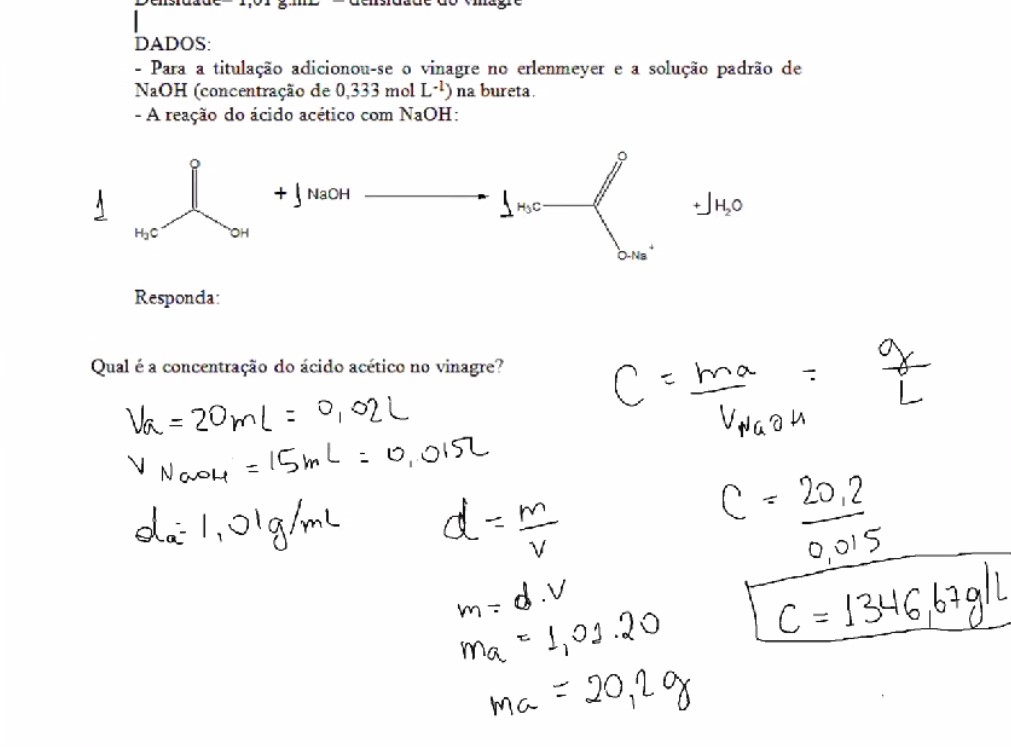 Densidade= 1,01 g.mL = densidade do vinagre
DADOS:
- Para a titulação adicionou-se o vinagre no erlenmeyer e a solução padrão de
NaOH (concentração de 0,333 mol L-1) na bureta.
- A reação do ácido acético com NaOH:
O
O
1
+ 1 NaOH
1 H3C
+ 1 H2O
H3C
OH
O-Na+
Responda:
Qual é a concentração do ácido acético no vinagre?
C = ma / VNaOH = g / L
Va = 20mL = 0,02L
V NaOH = 15mL = 0,015L
da = 1,01g/mL
d = m / v
C = 20,2 / 0,015
m = d.v
C = 1346,67g/L
ma = 1,01.20
ma = 20,2 g